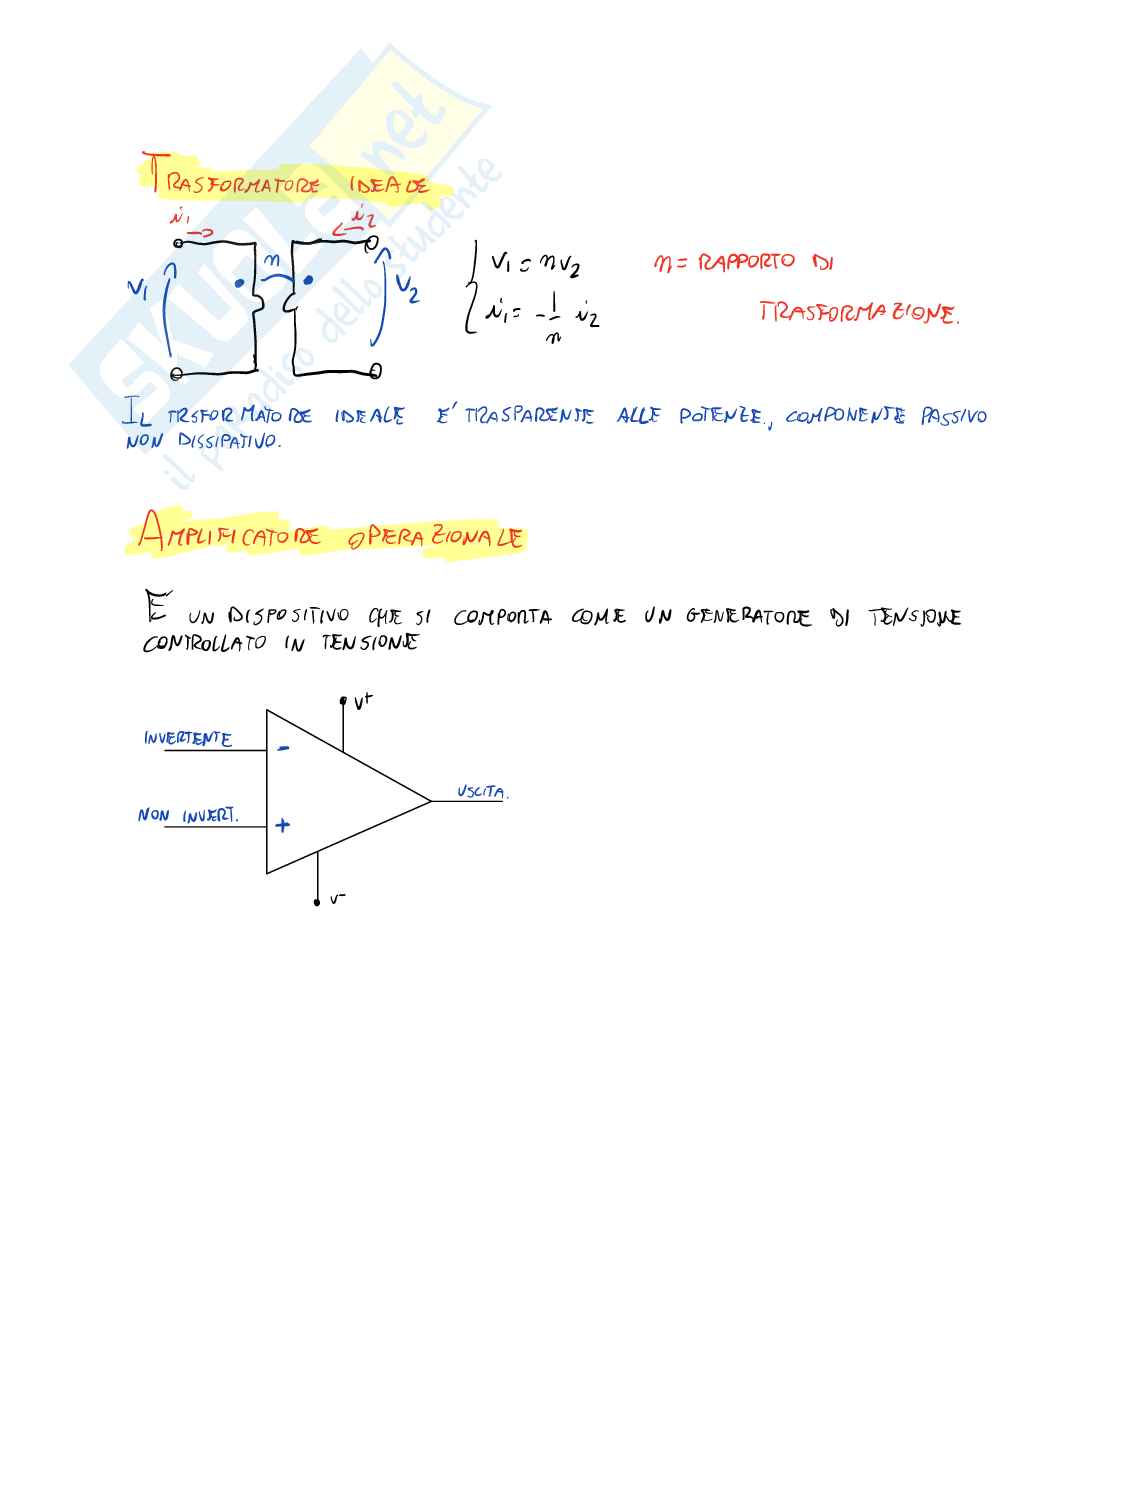 SKUOLA.net
il paradiso dello studente
TRASFORMATORE IDEALE
i₁ i₂
n
V₁ V₂
V₁ = nV₂
i₁ = -1/n i₂
n = RAPPORTO DI
TRASFORMAZIONE.
IL TRSFORMATORE IDEALE E' TRASPARENTE ALLE POTENZE., COMPONENTE PASSIVO
NON DISSIPATIVO.
AMPLIFICATORE OPERAZIONALE
E UN DISPOSITIVO CHE SI COMPORTA COME UN GENERATORE DI TENSIONE
CONTROLLATO IN TENSIONE
V+
INVERTENTE
-
USCITA.
NON INVERT.
+
V-